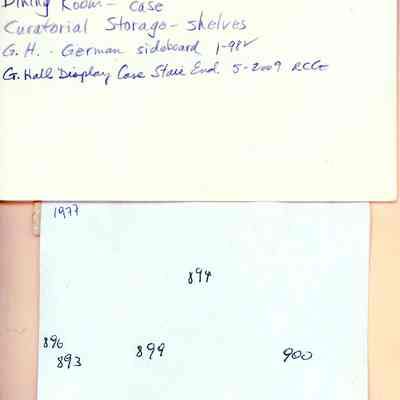 Dining Room - case
Curatorial Storage - shelves
G. H. - German sideboard 1-98✓
G. Hall Display Case Stair End 5-2009 RCGE
1977
894
896
893 899 900